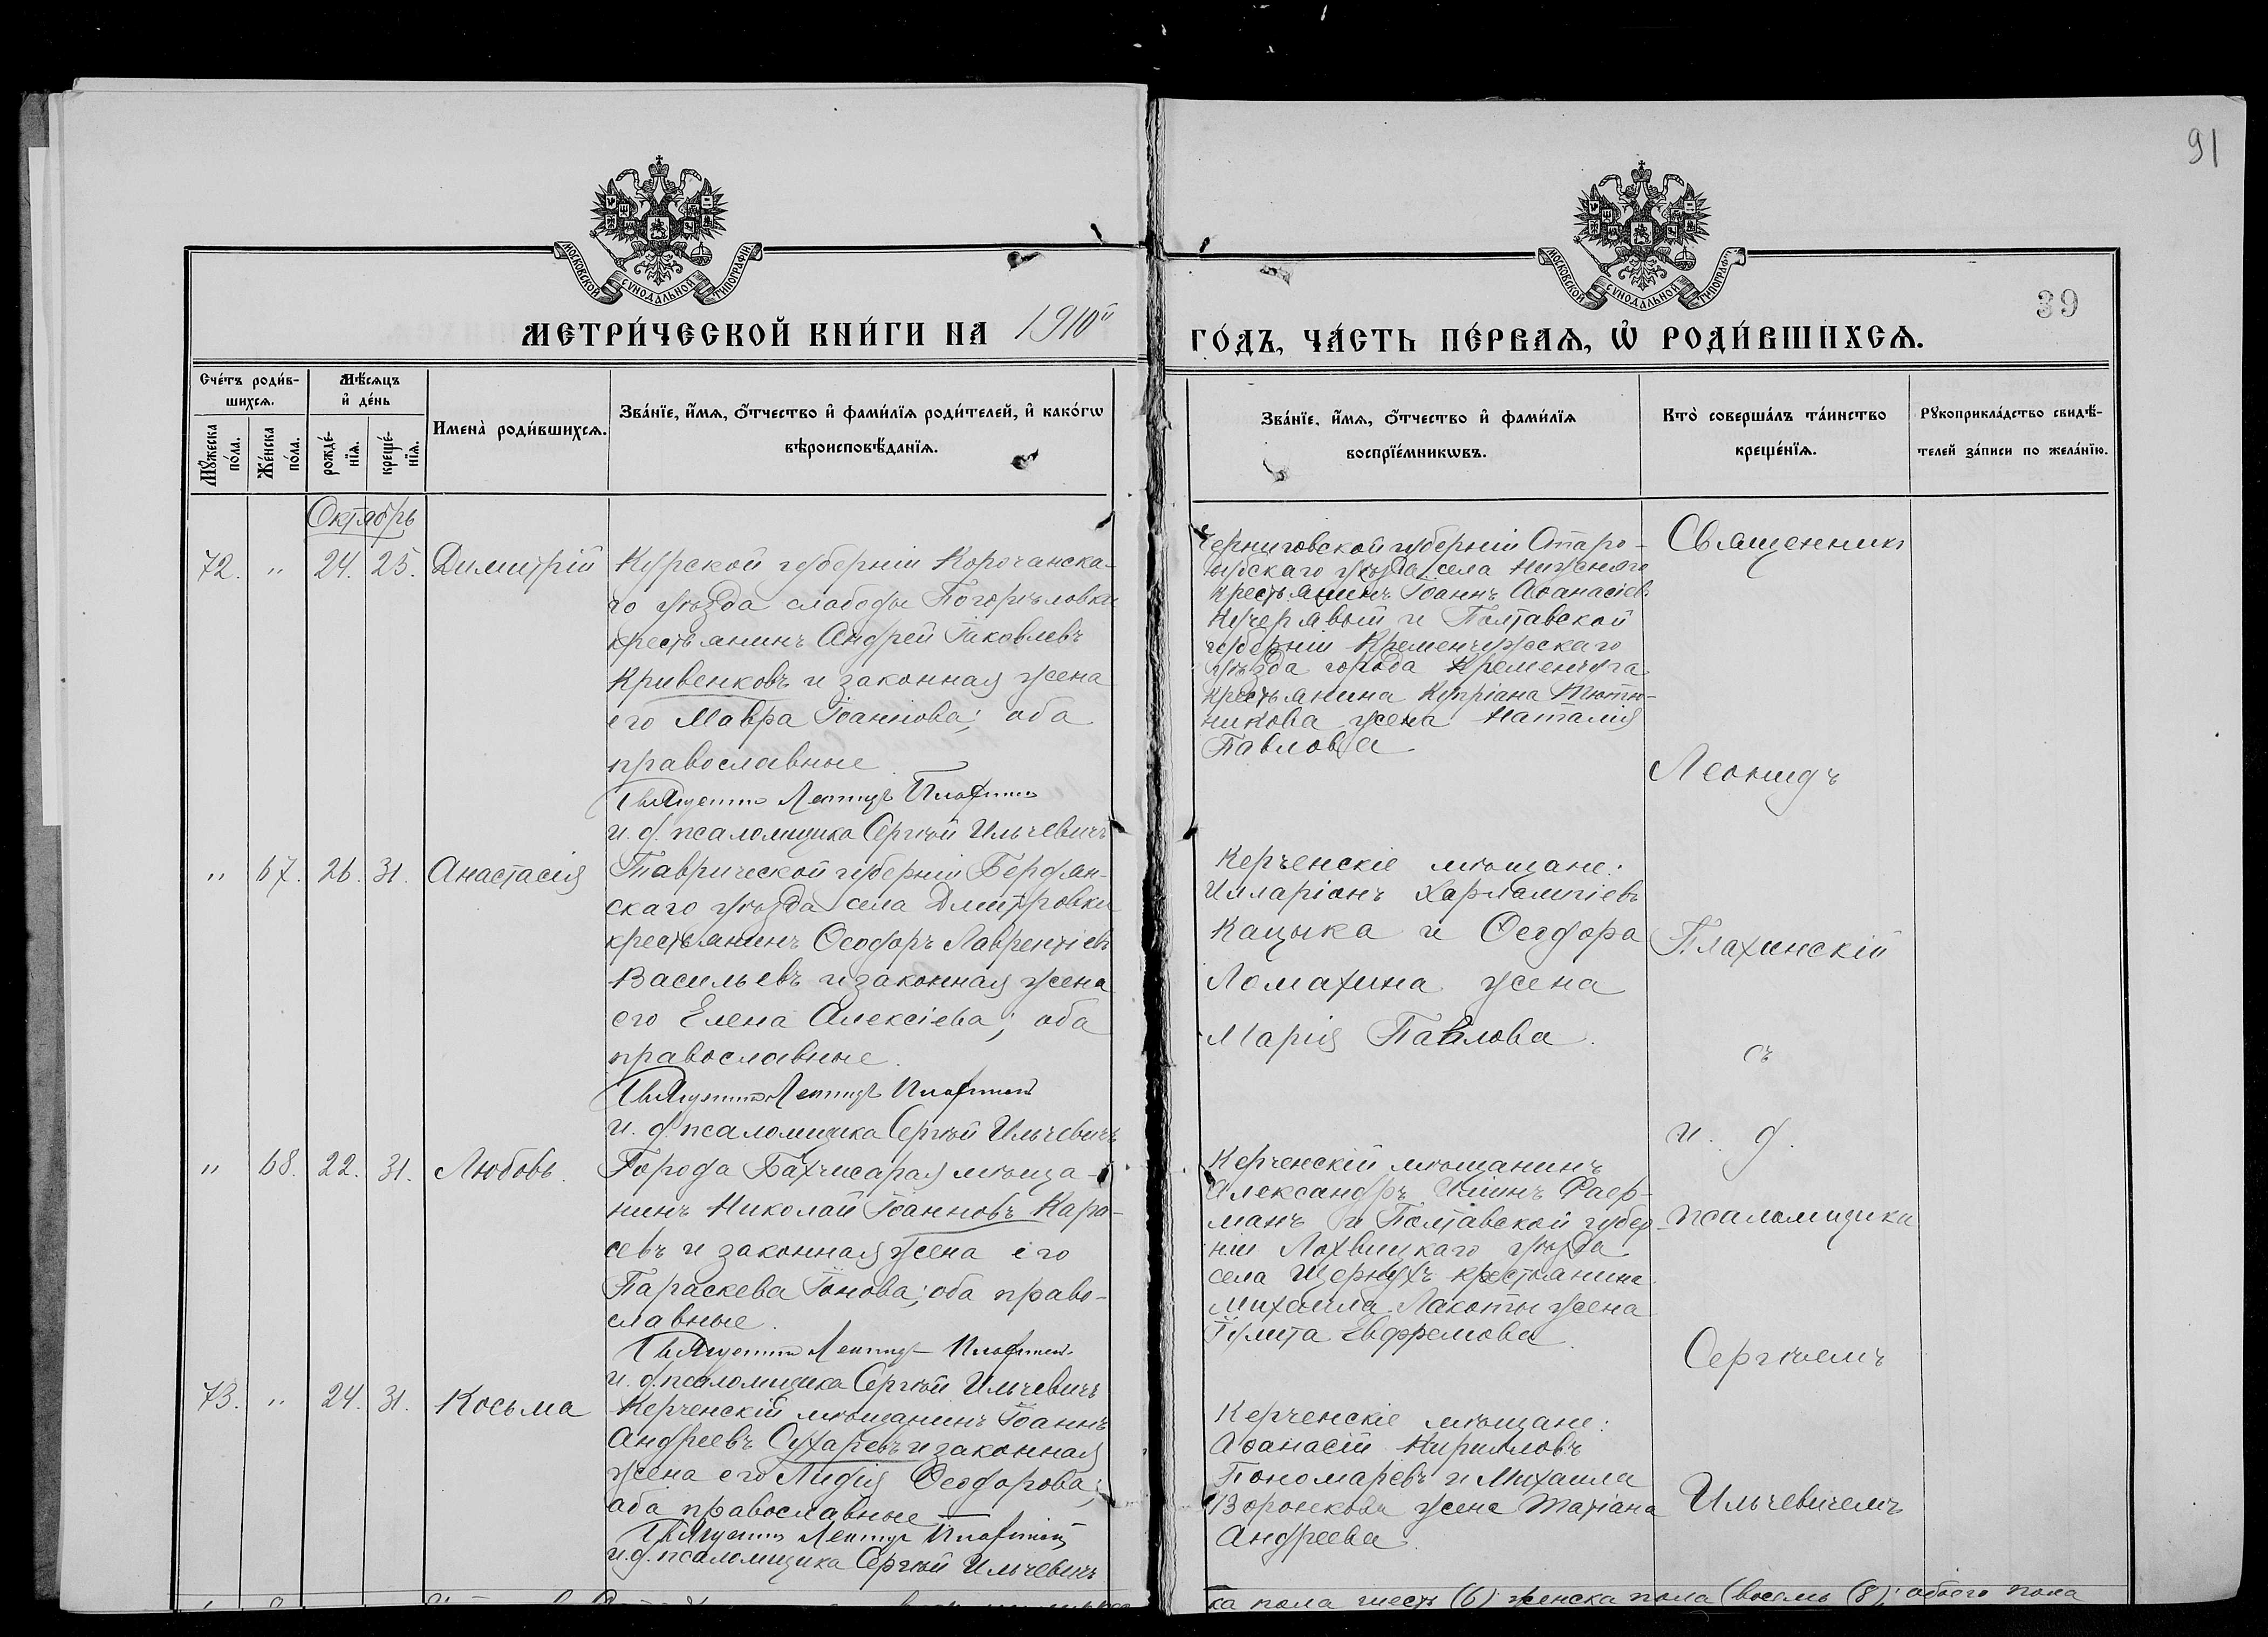 91
39
МОСКОВСКОЙ СУНОДАЛЬНОЙ ТИПОГРАФІИ
МОСКОВСКОЙ СУНОДАЛЬНОЙ ТИПОГРАФІИ
МЕТРИ́ЧЕСКОЙ КНИ́ГИ НА 1910й
ГО́ДЪ, ЧА́СТЬ ПЕ́РВАѦ, Ѡ҆ РОДИ́ВШИХСѦ.
Сче́тъ роди́в-
шихсѧ.
Мѣ́сѧцъ
и҆ де́нь
Мꙋ́жеска по́ла.
Же́нска по́ла.
рожде́-
нїѧ.
креще́-
нїѧ.
Имена̀ роди́вшихсѧ.
Зва́нїе, и҆́мѧ, о҆́тчество и҆ фами́лїѧ роди́телей, и҆ како́гѡ
вѣроисповѣ́данїѧ.
Зва́нїе, и҆́мѧ, о҆́тчество и҆ фами́лїѧ
воспрїе́мникѡвъ.
Кто̀ соверша́лъ та́инство
креще́нїѧ.
Рꙋкоприкла́дство свидѣ́-
телей за́писи по жела́нїю.
Октябрь
72. " 24. 25. Димитрій
Курской губерніи Корочанска-
го уѣзда слободы Погорѣловки
крестьянинъ Андрей Іаковлевъ
Кривенковъ и законная жена
его Мавра Іоаннова; оба
православные
Священникъ Леонидъ Плахинскій
и. д. псаломщика Сергѣй Ильчевичъ
Черниговской губерніи Старо-
дубскаго уѣзда села Нижняго
крестьянинъ Іоаннъ Аѳанасіевъ
Кучерявый и Полтавской
губерніи Кременчужскаго
уѣзда города Кременчуга
крестьянина Купріана Тютю-
никова жена Наталія
Павлова
" 67. 26. 31. Анастасія
Таврической губерніи Бердян-
скаго уѣзда села Дмитровки
крестьянинъ Ѳеодоръ Лаврентіев
Васильевъ и законная жена
его Елена Алексіева; оба
православные.
Священникъ Леонидъ Плахинскій
и. д. псаломщика Сергѣй Ильчевичъ
Керченскіе мѣщане:
Илларіонъ Харлампіевъ
Кацыка и Ѳеодора
Ломахина жена
Марія Павлова.
" 68. 22. 31. Любовь.
Города Бахчисарая мѣща-
нинъ Николай Іоанновъ Кара-
севъ и законная жена его
Параскева Іонова; оба право-
славные.
Священникъ Леонидъ Плахинскій
и. д. псаломщика Сергѣй Ильчевичъ
Керченскій мѣщанинъ
Александръ Фаер-
манъ и Полтавской губер-
ніи Лохвицкаго уѣзда
села крестьянина
Михаила Лакоты жена
Іулита Евфремова.
73. " 24. 31. Косьма
Керченскій мѣщанинъ Іоаннъ
Андреевъ Сухаревъ и законная
жена его Лидія Ѳеодорова;
оба православные
Священникъ Леонидъ Плахинскій
и. д. псаломщика Сергѣй Ильчевичъ
Керченскіе мѣщане:
Аѳанасій Кирилловъ
Пономаревъ и Михаила
Воронкова жена Татіана
Андреева.
Священникъ
Леонидъ
Плахинскій
съ
и. д.
псаломщика
Сергѣемъ
Ильчевичемъ
ка пола шесть (6) женска пола (восемь (8); обоего пола